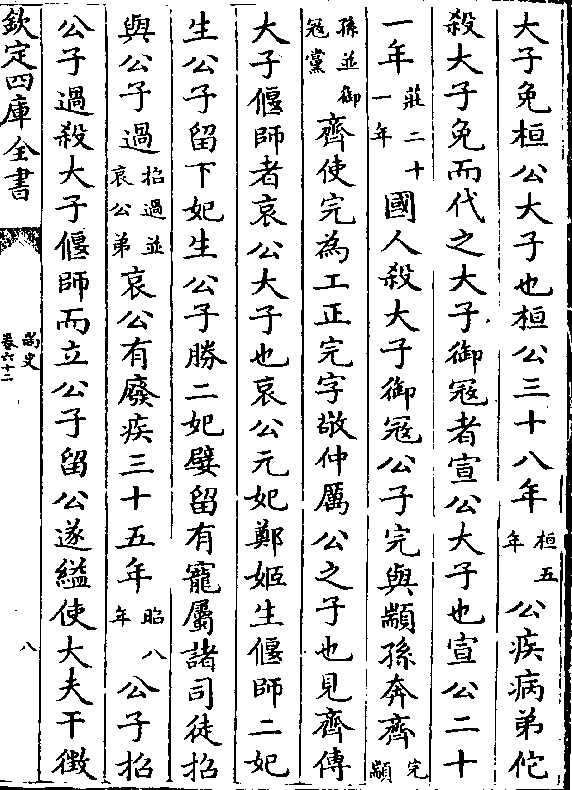 大子免桓公大子也桓公三十八年桓五年公疾病弟佗
殺大子免而代之大子御冦者宣公大子也宣公二十
一年莊二十一年國人殺大子御冦公子完與顓孫奔齊完顓
孫並御冦黨齊使完為工正完字敬仲厲公之子也見齊傳
大子偃師者哀公大子也哀公元妃鄭姬生偃師二妃
生公子留下妃生公子勝二妃嬖留有寵屬諸司徒招
與公子過招過並哀公弟哀公有廢疾三十五年昭八年公子招
公子過殺大子偃師而立公子留公遂縊使大夫干徵
欽定四庫全書
尚史
卷六十二
八